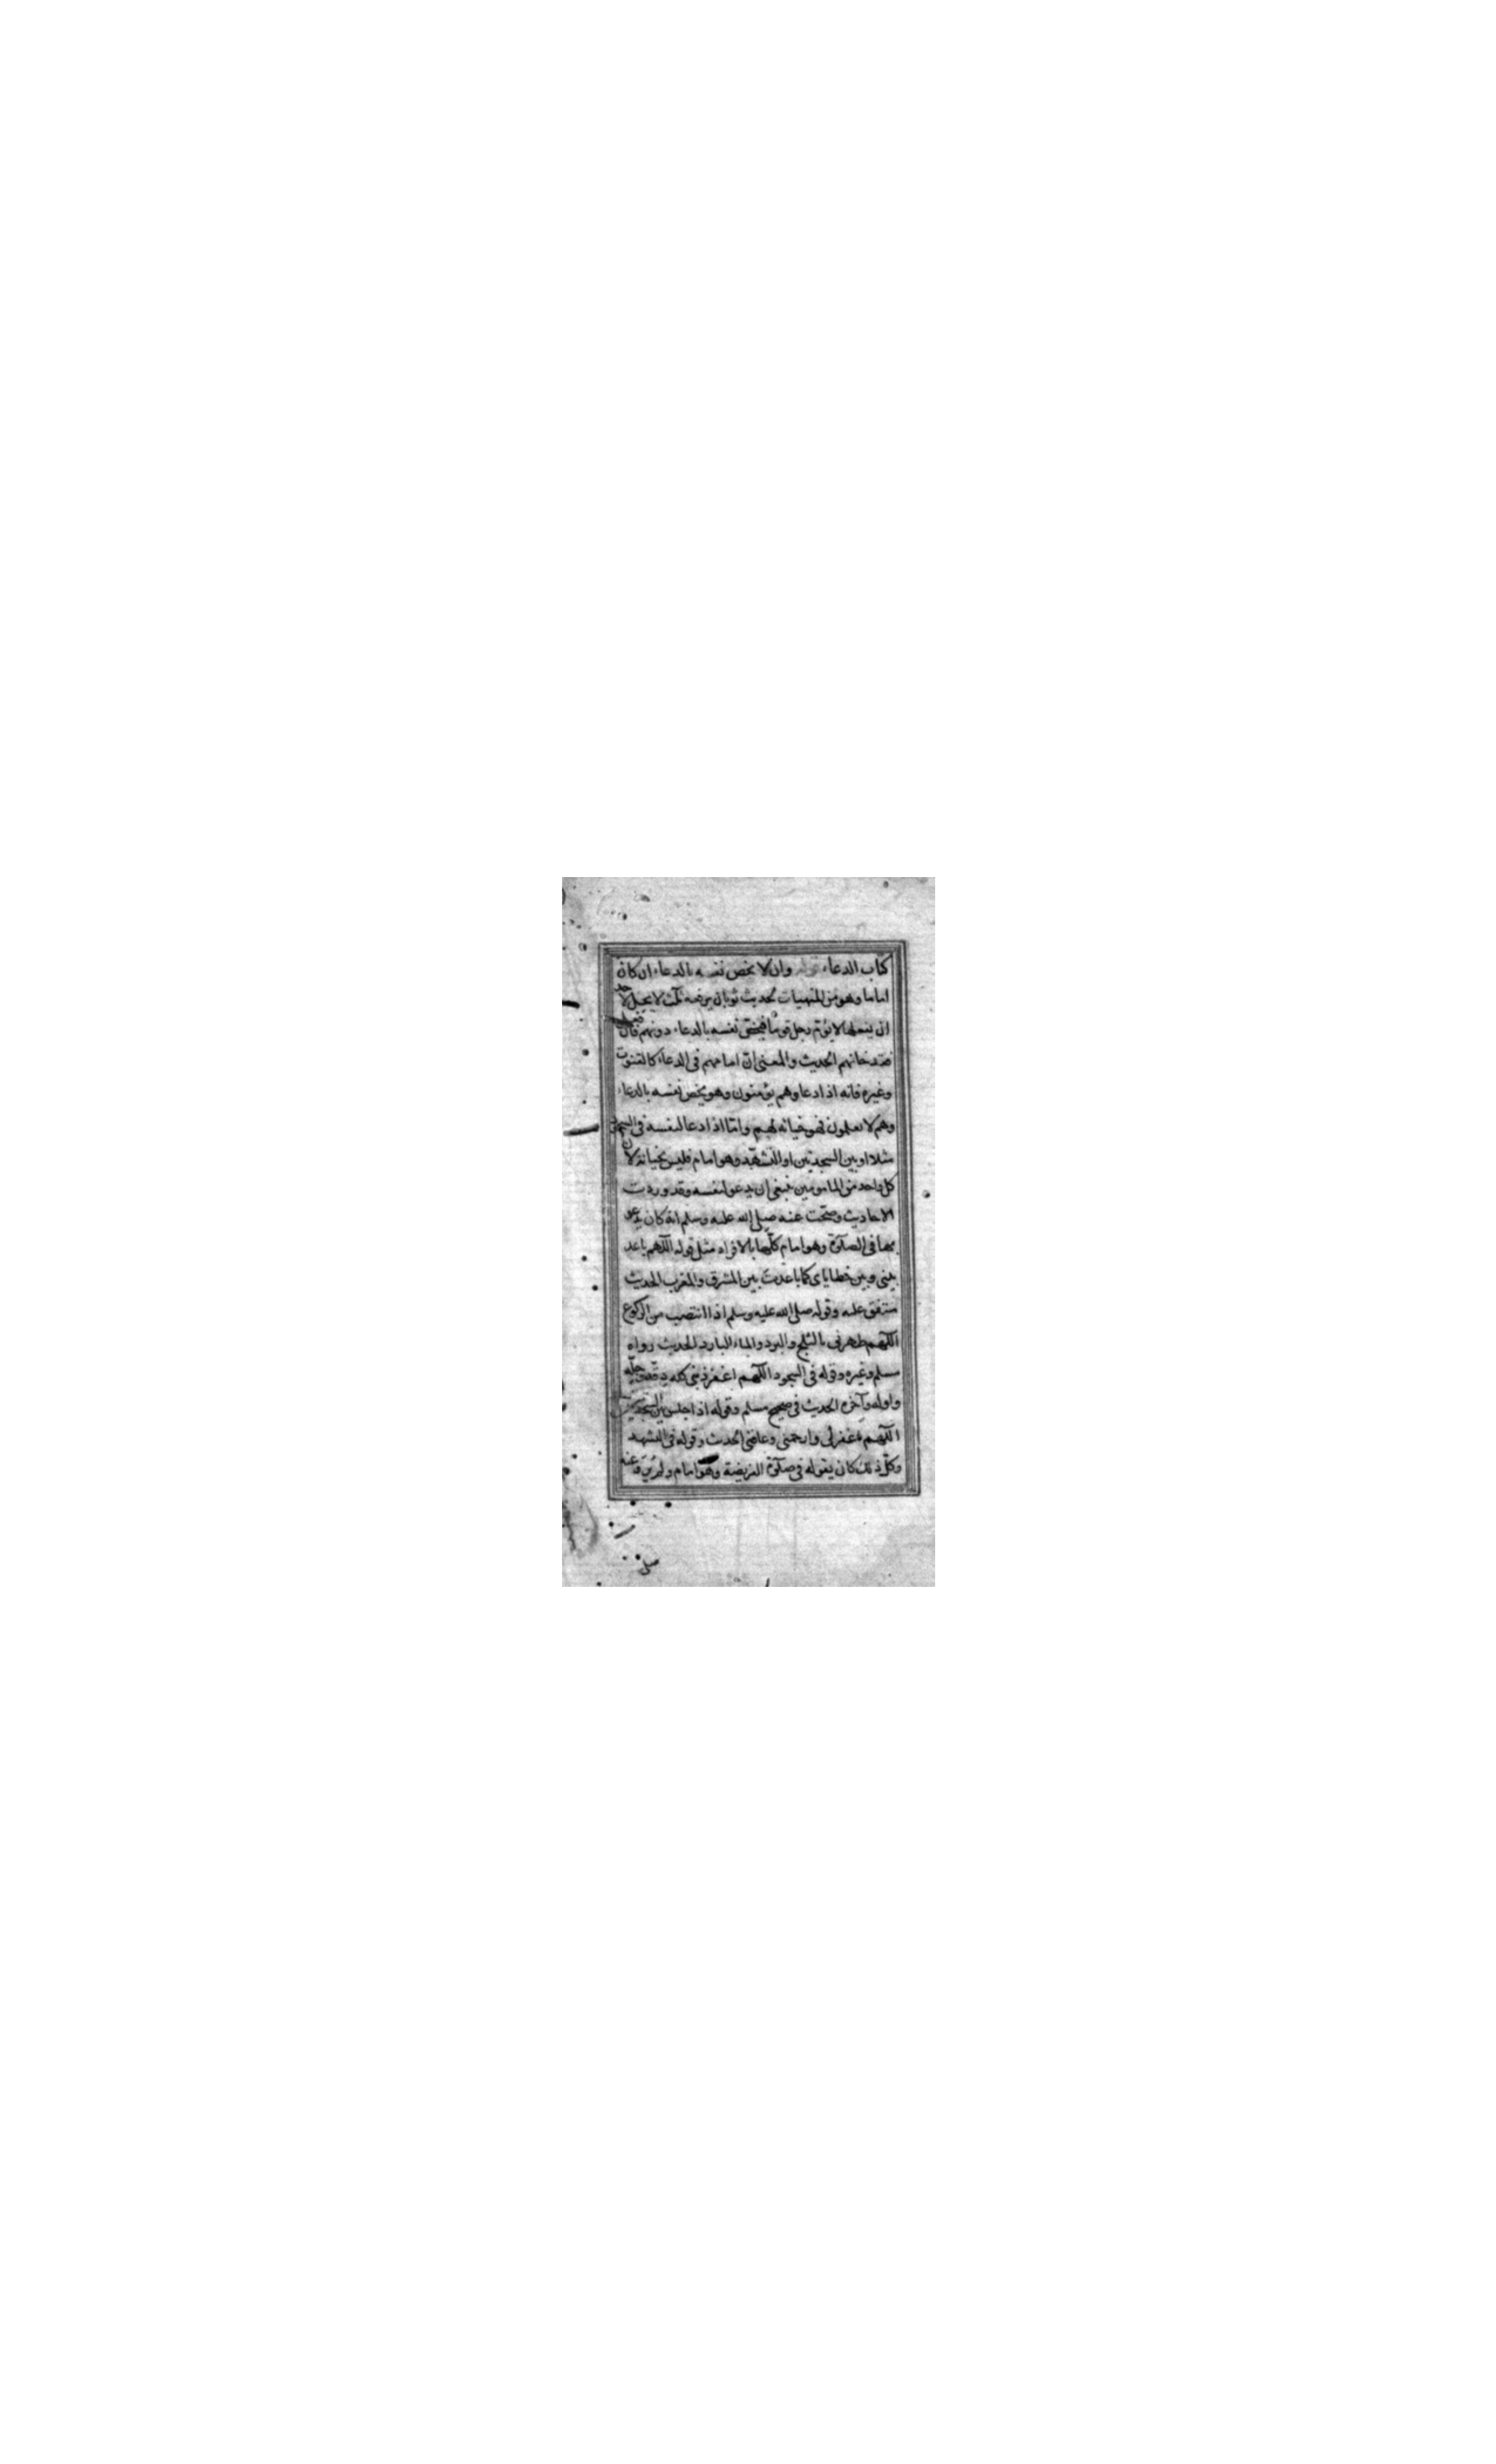 كتاب الدعاء قوله وان لا يخص نفسه بالدعاء ان كان
اماما وهو من المنهيات لحديث ثوبان يرفعه ثلث لا يحل لاحد
ان يفعلها لا يؤم رجل قوما فيخص نفسه بالدعاء دونهم فان فعل
فقد خانهم الحديث والمعنى ان امامهم فى الدعاء كالقنوت
وغيره فانه اذا دعا وهم يؤمنون وهو يخص نفسه بالدعاء
وهم لا يعلمون فهو خيانه لهم واما اذا دعا لنفسه فى السجود
مثلا او بين السجدتين او التشهد وهو امام فليس بخيانة لان
كل واحد من المامومين ينبغى ان يدعو لنفسه وقد وردت
الاحاديث وصحت عنه صلى الله عليه وسلم انه كان يدعو
بها فى الصلوة وهو امام كلها بالافراد مثل قوله اللهم باعد
بينى وبين خطاياى كما باعدت بين المشرق والمغرب الحديث
متفق عليه وقوله صلى الله عليه وسلم اذا انتصب من الركوع
اللهم طهرنى بالثلج والبرد والماء البارد الحديث رواه
مسلم وغيره وقوله فى السجود اللهم اغفر ذنبى كله دقه وجله
واوله وآخره الحديث فى صحيح مسلم وقوله اذا جلس بين السجدتين
اللهم اغفر لى وارحمنى وعافنى الحديث وقوله فى التشهد
وكل ذلك كان يقوله فى صلوة الفريضة وهو امام ولم يرو عنه